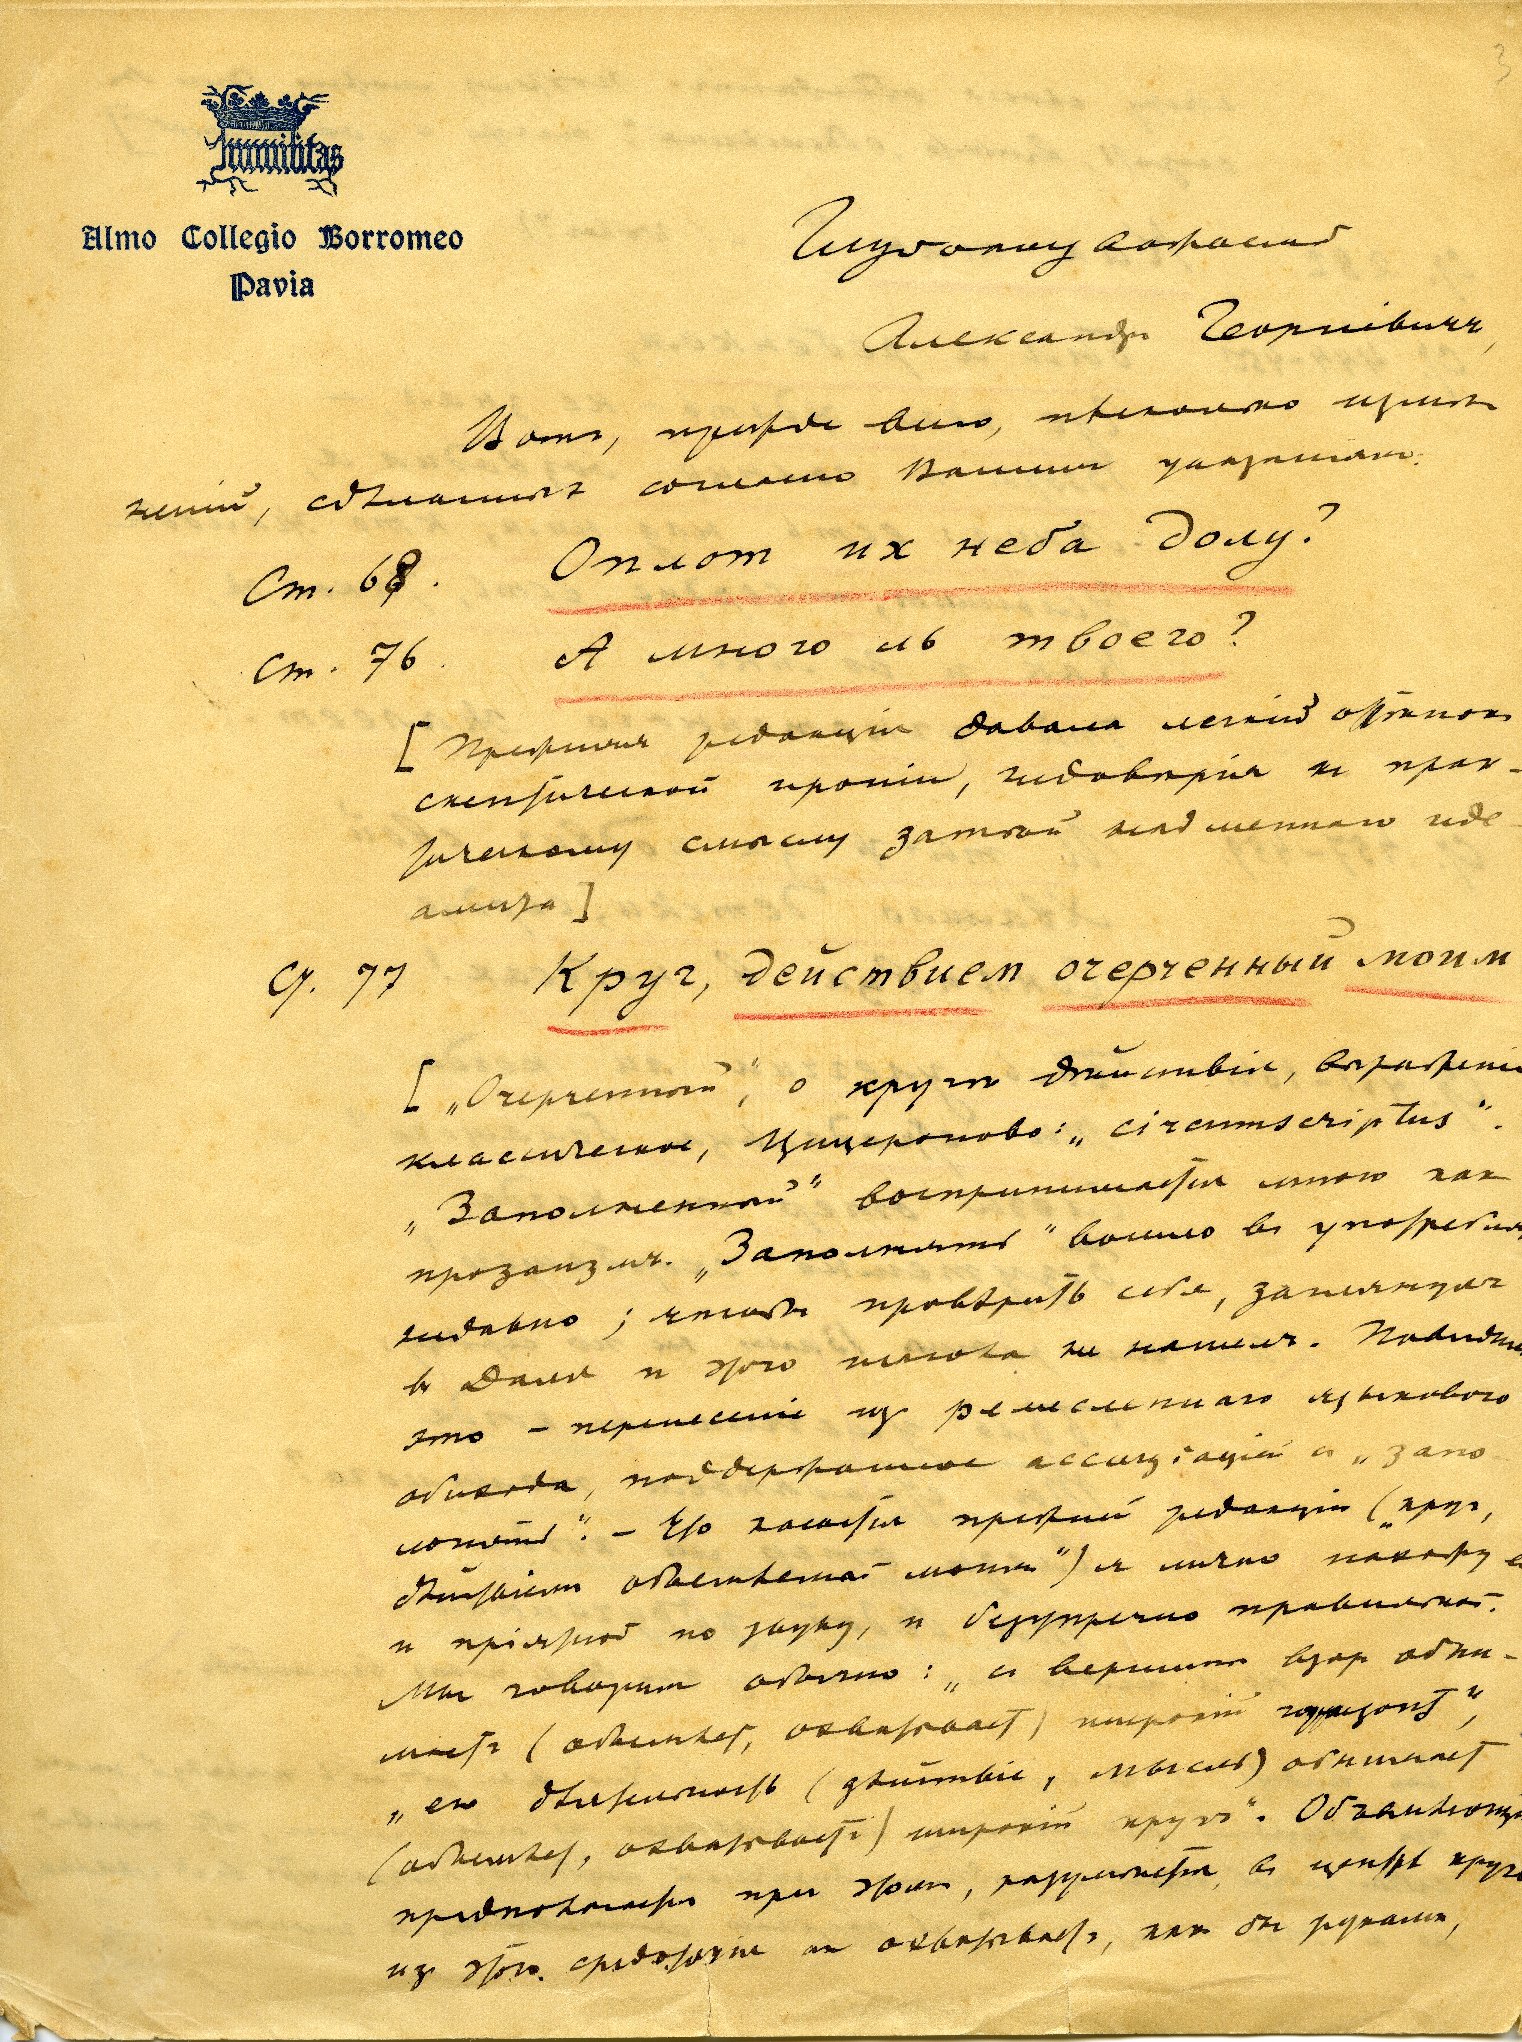 3
Humilitas
Almo Collegio Borromeo
Pavia
Глубокоуважаемый
Александр Георгіевичъ,
Вотъ, прежде всего, нѣсколько измѣ-
неній, сдѣланныхъ согласно Вашимъ указаніямъ:
Ст. 68. Оплот их неба долу?
Ст. 76. А много ль твоего?
[Прежняя редакція давала легкій оттѣнок
скептической ироніи, недовѣрія к прак-
тическому смыслу затѣй надменнаго иде-
ализма]
Ст. 77 Круг, действием очерченный моим
[„Очерченный“, о кругѣ дѣйствія, выраженіе
классическое, Цицероново: „circumscriptus“.
„Заполненный“ воспринимается мною как
прозаизмъ. „Заполнять“ вошло в употребленіе
недавно; чтобы провѣрить себя, заглянулъ
в Даля и этого глагола не нашелъ. Повидимому
это – перенесеніе из ремесленнаго языкового
обихода, поддержанное ассоціаціей с „запо-
лонить“. – Что касается прежней редакціи („круг,
дѣйствіем объемлемый моим“) я лично нахожу ее
и пріятной по звуку, и безупречно правильной.
Мы говорим обычно: „с вершины взор обни-
мает (объемлет, охватывает) широкій горизонт“,
„его дѣятельность (дѣйствіе, мысль) обнимает
(объемлет, охватывает) широкій кругъ“. Объемлющій
предполагается при этом, разумѣется, в центрѣ круга
из этого средоточія он охватывает, как бы руками,